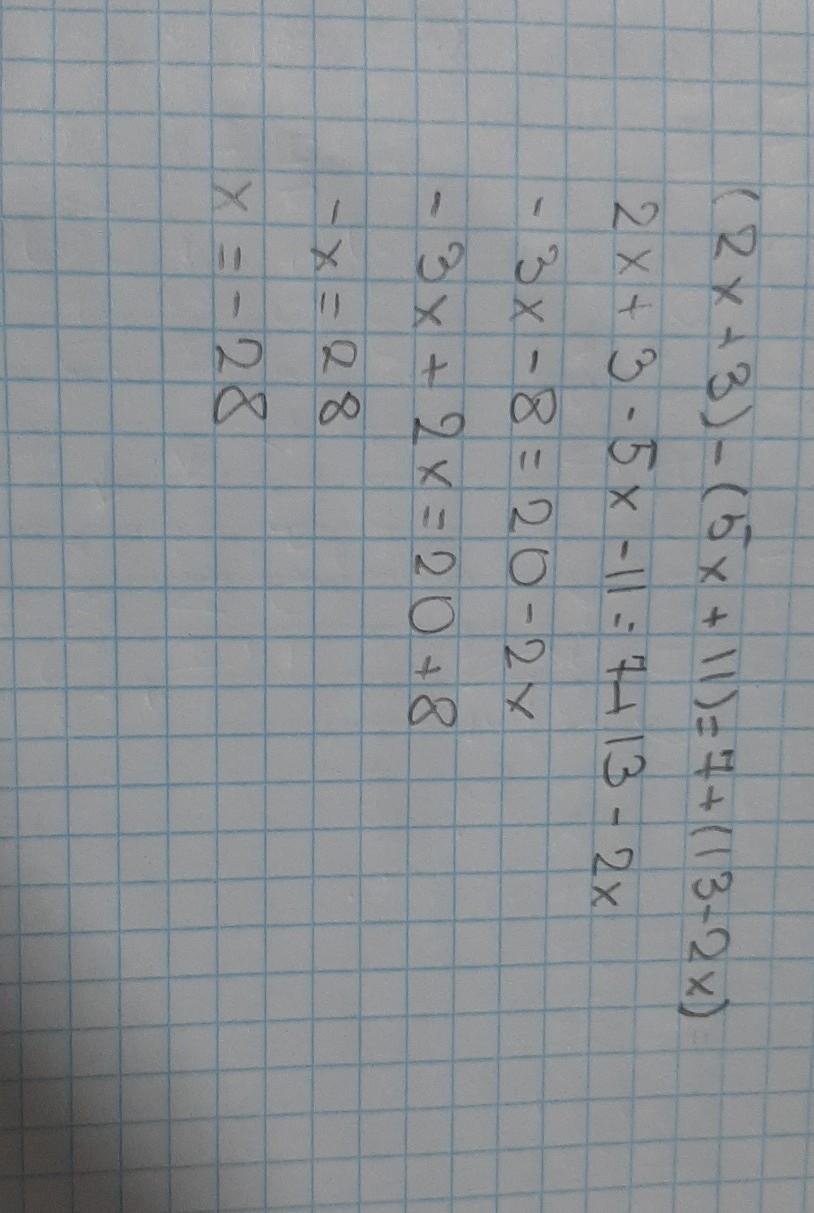 (2x+3)-(5x+11)=7+(13-2x)
2x+3-5x-11=7+13-2x
-3x-8=20-2x
-3x+2x=20+8
-x=28
x=-28